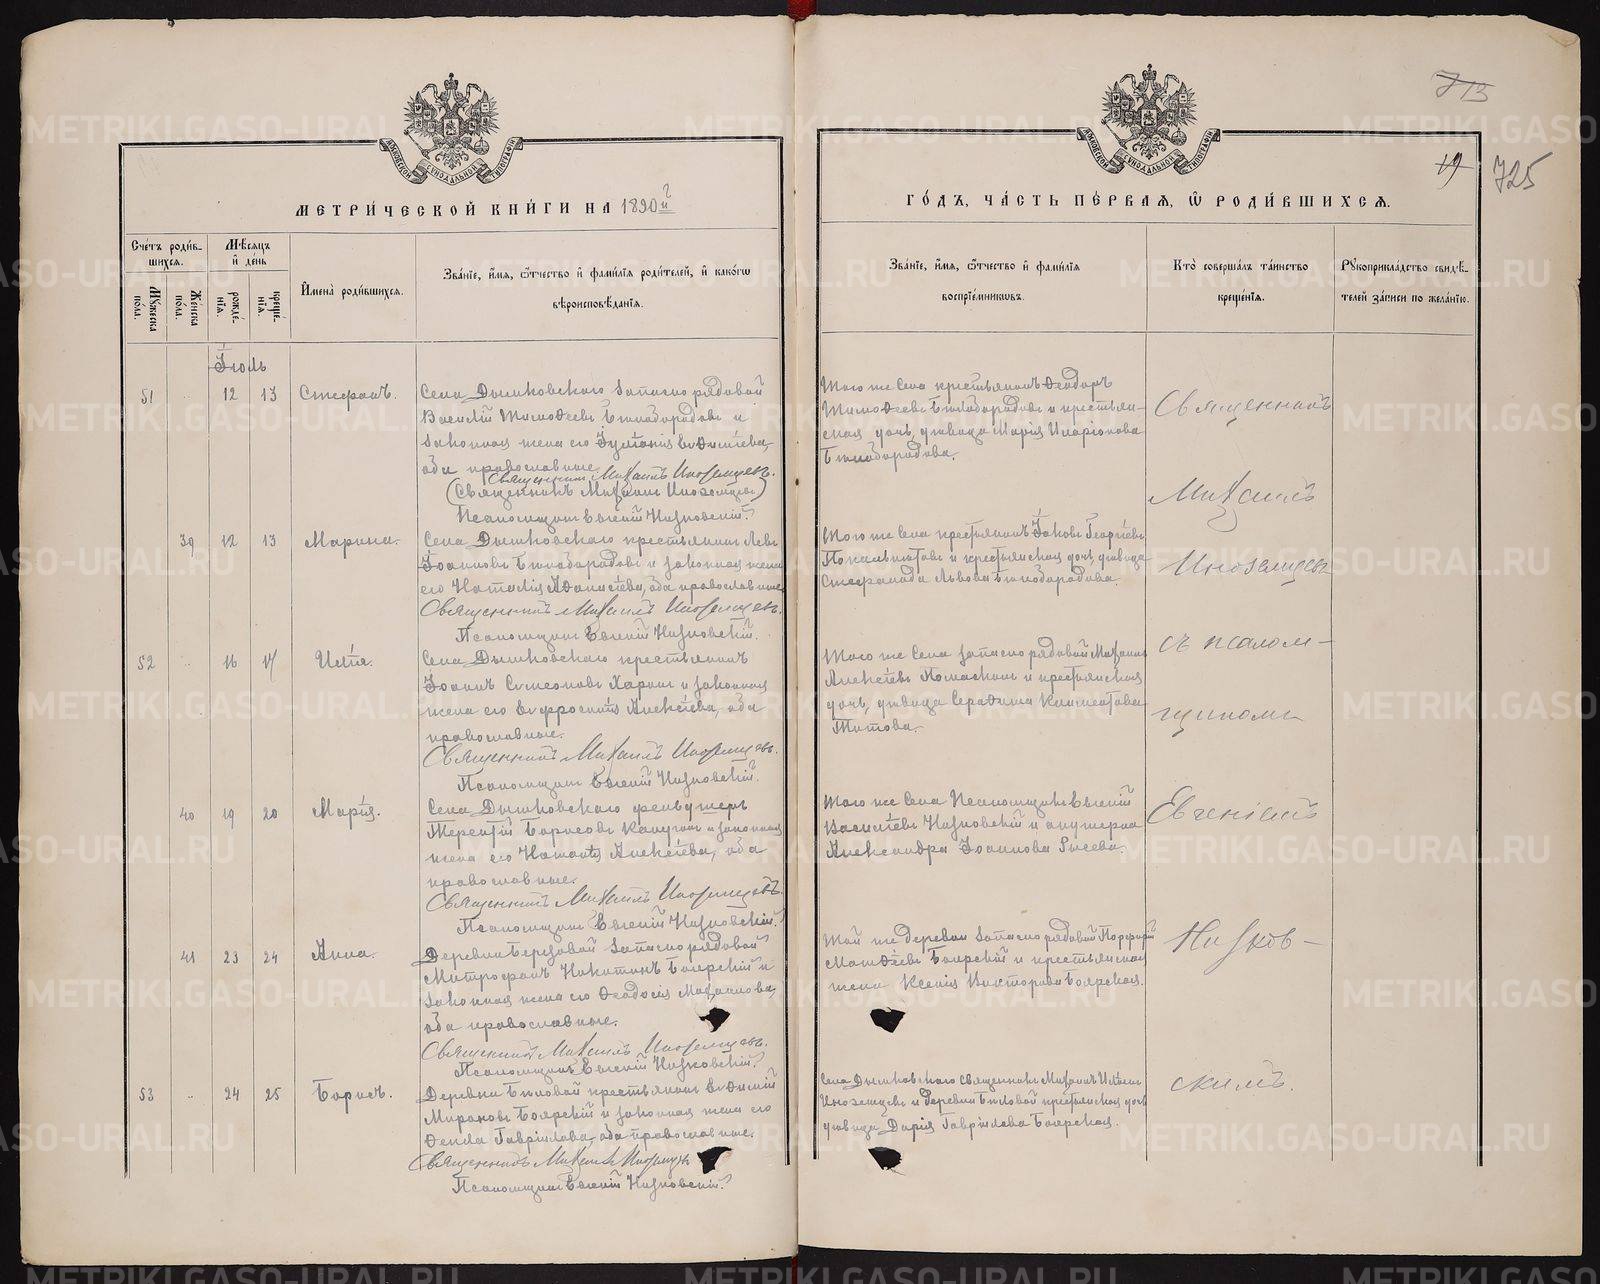 713
19 725
МЕТРИ́ЧЕСКОЙ КНИ́ГИ НА 1890й г
ГО́ДЪ, ЧА́СТЬ ПЕ́РВАЯ, Ѿ РОДИ́ВШИХСЯ.
Сче́тъ роди́в-
шихся.
Му́жеска по́ла.
Же́нска по́ла.
Мѣ́сяцъ и де́нь
рожде́нїя.
креще́нїя.
И́мена роди́вшихся.
Зва́нїе, и́мя, ѻ́тчество и фами́лїя роди́телей, и како́гѡ
вѣроисповѣ́данїя.
Зва́нїе, и́мя, ѻ́тчество и фами́лїя
воспрїе́мникѡвъ.
Кто̀ соверша́лъ та́инство
креще́нїя.
Рꙋкоприкла́дство свидѣ́-
телей за́писи по жела́нїю.
Іюль
51 12 13 Стефанъ.
Села Дымковскаго запасно рядовой
Василій Тимофеевъ Бѣлобородовъ и
законная жена его
оба православные.
Священникъ Михаилъ Иноземцевъ.
(Священникъ Михаилъ Иноземцевъ)
Псаломщикъ Евгеній Низковскій.
Того же села крестьянинъ Ѳеодоръ
Тимофеевъ Бѣлобородовъ и крестьян-
ская дочь, девица Марія Иларіонова
Бѣлобородова.
39 12 13 Марина.
Села Дымковскаго крестьянинъ Левъ
Іоанновъ Бѣлобородовъ и законная жена
его Наталія Аѳанасіева, оба православные
Священникъ Михаилъ Иноземцевъ.
Псаломщикъ Евгеній Низковскій.
Того же села крестьянинъ Іаковъ Георгіевъ
и крестьянская дочь, девица
Стефанида Львова Бѣлобородова.
52 16 17 Илія.
Села Дымковскаго крестьянинъ
Іоаннъ Симеоновъ Харинъ и законная
жена его Евфросинія Алексѣева, оба
православные.
Священникъ Михаилъ Иноземцевъ.
Псаломщикъ Евгеній Низковскій.
Того же села запасно рядовой Михаилъ
Алексѣевъ и крестьянская
дочь, девица Серафима Климентова
Титова.
40 19 20 Марія.
Села Дымковскаго фельдшеръ
Терентій Борисовъ и законная
жена его Наталія Алексѣева, оба
православные.
Священникъ Михаилъ Иноземцевъ.
Псаломщикъ Евгеній Низковскій.
Того же села Псаломщикъ Евгеній
Василіевъ Низковскій и акушерка
Александра Іоаннова
41 23 24 Анна.
Деревни Березовой запасно рядовой
Митрофанъ Никитинъ Боярскій и
законная жена его Ѳеодосія Михаилова,
оба православные.
Священникъ Михаилъ Иноземцевъ.
Псаломщикъ Евгеній Низковскій.
Той же деревни запасно рядовой Порфирій
Матѳеевъ Боярскій и крестьянская
жена Ксенія Викторова Боярская.
53 24 25 Борисъ.
Деревни Бѣловой крестьянинъ Евфимій
Мироновъ Боярскій и законная жена его
Ѳекла Гавріилова, оба православные.
Священникъ Михаилъ Иноземцевъ
Псаломщикъ Евгеній Низковскій.
Села Дымковскаго священникъ Михаилъ Иліинъ
Иноземцевъ и деревни Бѣловой крестьянская дочь
девица Дарія Гавріилова Боярская.
Священникъ
Михаилъ
Иноземцевъ
съ псалом-
щикомъ
Евгеніемъ
Низков-
скимъ.
METRIKI.GASO-URAL.RU